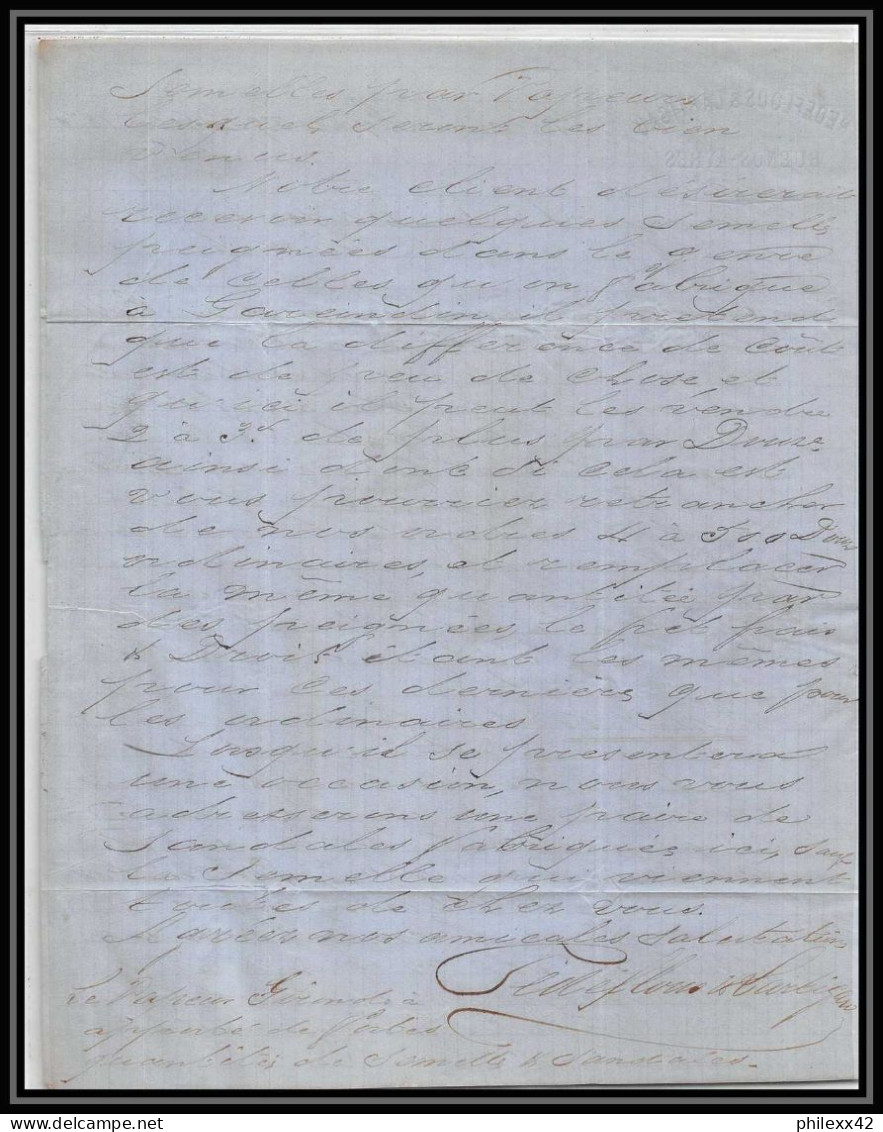 Semelles par Vapeurs
lesquels seront les bien
venus.
Notre client désirerait
recevoir quelques semelles
peignées dans le genre
de celles qu'on fabrique
à il prétend
que la différence de coût
est de peu de chose, et
qu'ici il peut les vendre
2 à 3 de plus par Douze
ainsi dont si cela est
vous pourriez retrancher
de nos ordres 4 à 500 Douz
ordinaires, et remplacer
la même quantité par
des peignées, le frêt, frais
& Droits étant les mêmes
pour ces dernières que pour
les ordinaires
Lorsqu'il se presentera
une occasion, nous vous
adresserons une paire de
Sandales fabriqués ici, sauf
la Semelle qui viennent
toutes de chez vous.
Agréez nos amicales salutations
Le Vapeur Gironde a
apporté de fortes
quantités de semelles & sandales.
philexx42